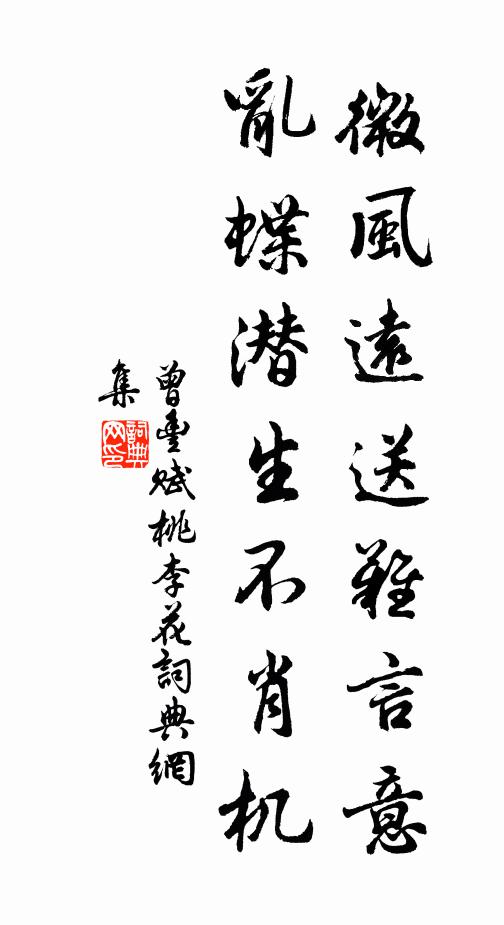 微風遠送難言意
亂蝶潜生不肖机
曾豊賦桃李花詞典網
集
詞典网印